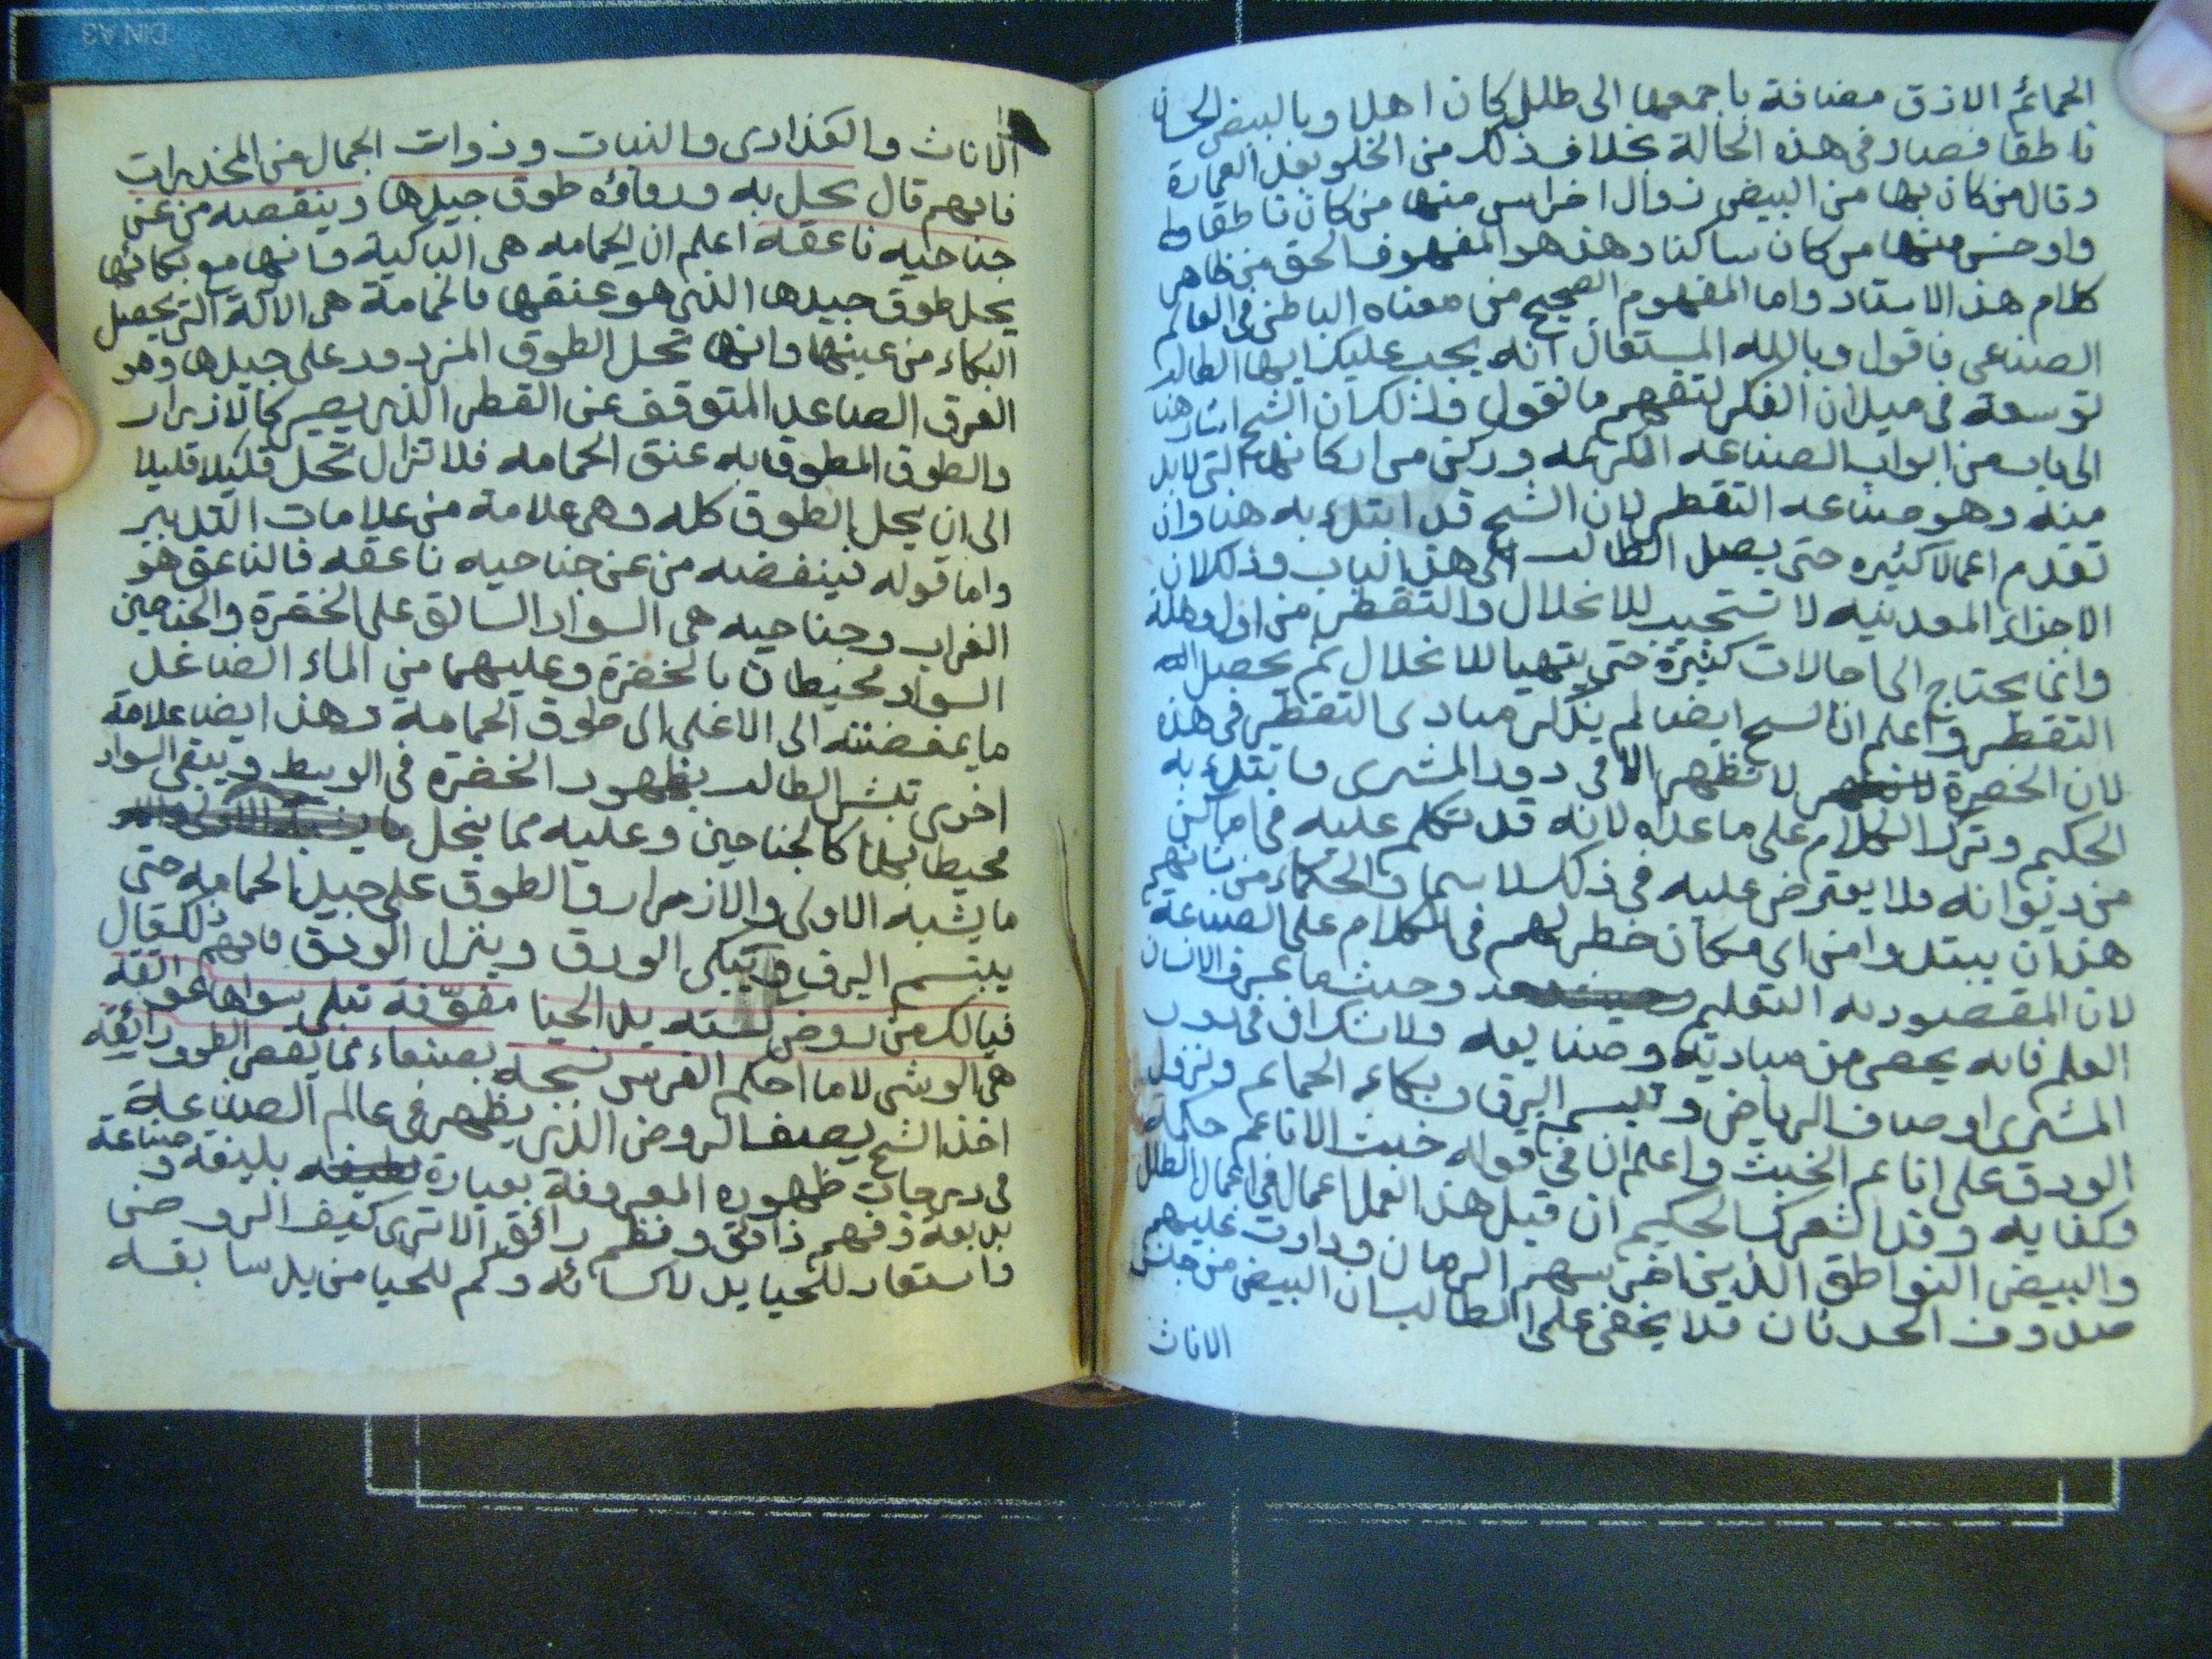 الحمائم الازق مضافة باجمعها الى طلل كان اهلا وبالبيض الحسان
ناطقا فصار في هذه الحالة بخلاف ذلك من الخلو بعد العمارة
وقال من كان بها من البيض زوال اخراس منها من كان ناطقا
واوحش منها من كان ساكنا وهذا هو المفهوف الحق من ظاهر
كلام هذا الاستاد واما المفهوم الصحيح من معناه الباطن في العالم
الصناعي فاقول وبالله المستعان انه يجب عليك ايها الطالب
توسعة في ميدان الفكر لتفهم ما نقول وذلك ان الشيخ اشار هنا
الى باب من ابواب الصناعه الكريمه وركن من اركانها التي لابد
منه وهو صناعه التقطير لان الشيخ قد ابتدء به هنا وان
تقدم اعمالا كثيره حتى يصل الطالب الى هذا الباب وذلك لان
الاجزاء المعدنيه لا تستجيب للانحلال والتقطير من اول وهلة
وانما يحتاج الى حالات كثيرة حتى يتهيا للانحلال ثم يحصل له
التقطير واعلم ان الشيخ ايضا لم يذكر مبادى التقطير في هذه
لان الخضرة لا تظهر الا في دور المشرى فابتدء به
الحكيم وترك الكلام على ما عداه لانه قد تكلم عليه في اماكن
من ديوانه فلا يعترض عليه في ذلك لاسيما والحكماء من شانهم
هذا ان يبتدوا من اي مكان خطر لهم في الكلام على الصناعة
لان المقصود به التعليم وحيثما عرف الانسان
العلم فانه يحصى من مباديه وصنايعه ولا شك ان في دور
المشرى اوصاف الرياض وتبسم البرق وبكاء الحمائم ونزول
الودق على اناعم الخبث واعلم ان في قوله خبت الاناعم حكمة
وكفايه وقد اشعرك الحكيم ان قبل هذا العمل اعمالا في اعمال الطلل
والبيض النواطق الذين اخرسهم الزمان ودارت عليهم
صدوف الحدثان فلا يخفى على الطالب ان البيض من جنس
الاناث
الاناث والعذارى والنبات وذوات الجمال من المخدرات
فافهم قال يحل به ورقاؤه طوق جيدها وينفضه من عن
جناحيه ناعقه اعلم ان الحمامه هي الباكية فانها مع بكائها
يحل طوق جيدها الذي هو عنقها فالحمامة هي الالة التي يحصل
البكاء من عينها وانها تحل الطوق المزدود على جيدها وهو
العرق الصاعد المتوقف عن القطر الذي يصير كالازرار
والطوق المطوق به عنق الحمامه فلا تزال تحل قليلا قليلا
الى ان يحل الطوق كله وهي علامة من علامات التدبير
واما قوله فينفضه من عن جناحيه ناعقه فالناعق هو
الغراب وجناحيه هي السواد السالق على الخضرة والجناحين
السواد محيطان بالخضرة وعليهما من الماء الصاعد
ما يمفضنه الى الاعلى الى طوق الحمامه وهذا ايضا علامة
اخرى تبشر الطالب بظهور الخضرة في الوسط ويبقى السواد
محيطا بها كالجناحين وعليه مما ينحل
ما يشبه الاولى والازمرار والطوق على جيد الحمامه حتى
يبتسم البرق وتبكى الورق وينزل الودق فافهم ذلك قال
فيالك من روض كسته يد الحيا مفوّفة تبلى سواها عواتقه
هي الوشى لا ما احكم الفرس نسجه بصنعاء مما يعص الطور رائقه
اخذ الشيخ يصف الروض الذي يظهر في عالم الصناعة
في درجات ظهوره المعروفة بعبارة بليغه وصناعة
بديعة وفهم ذائق ونظم رائق الا ترى كيف الروض
واستعار للحيا يد لاكسائه وكم للحيا من يد سابغه